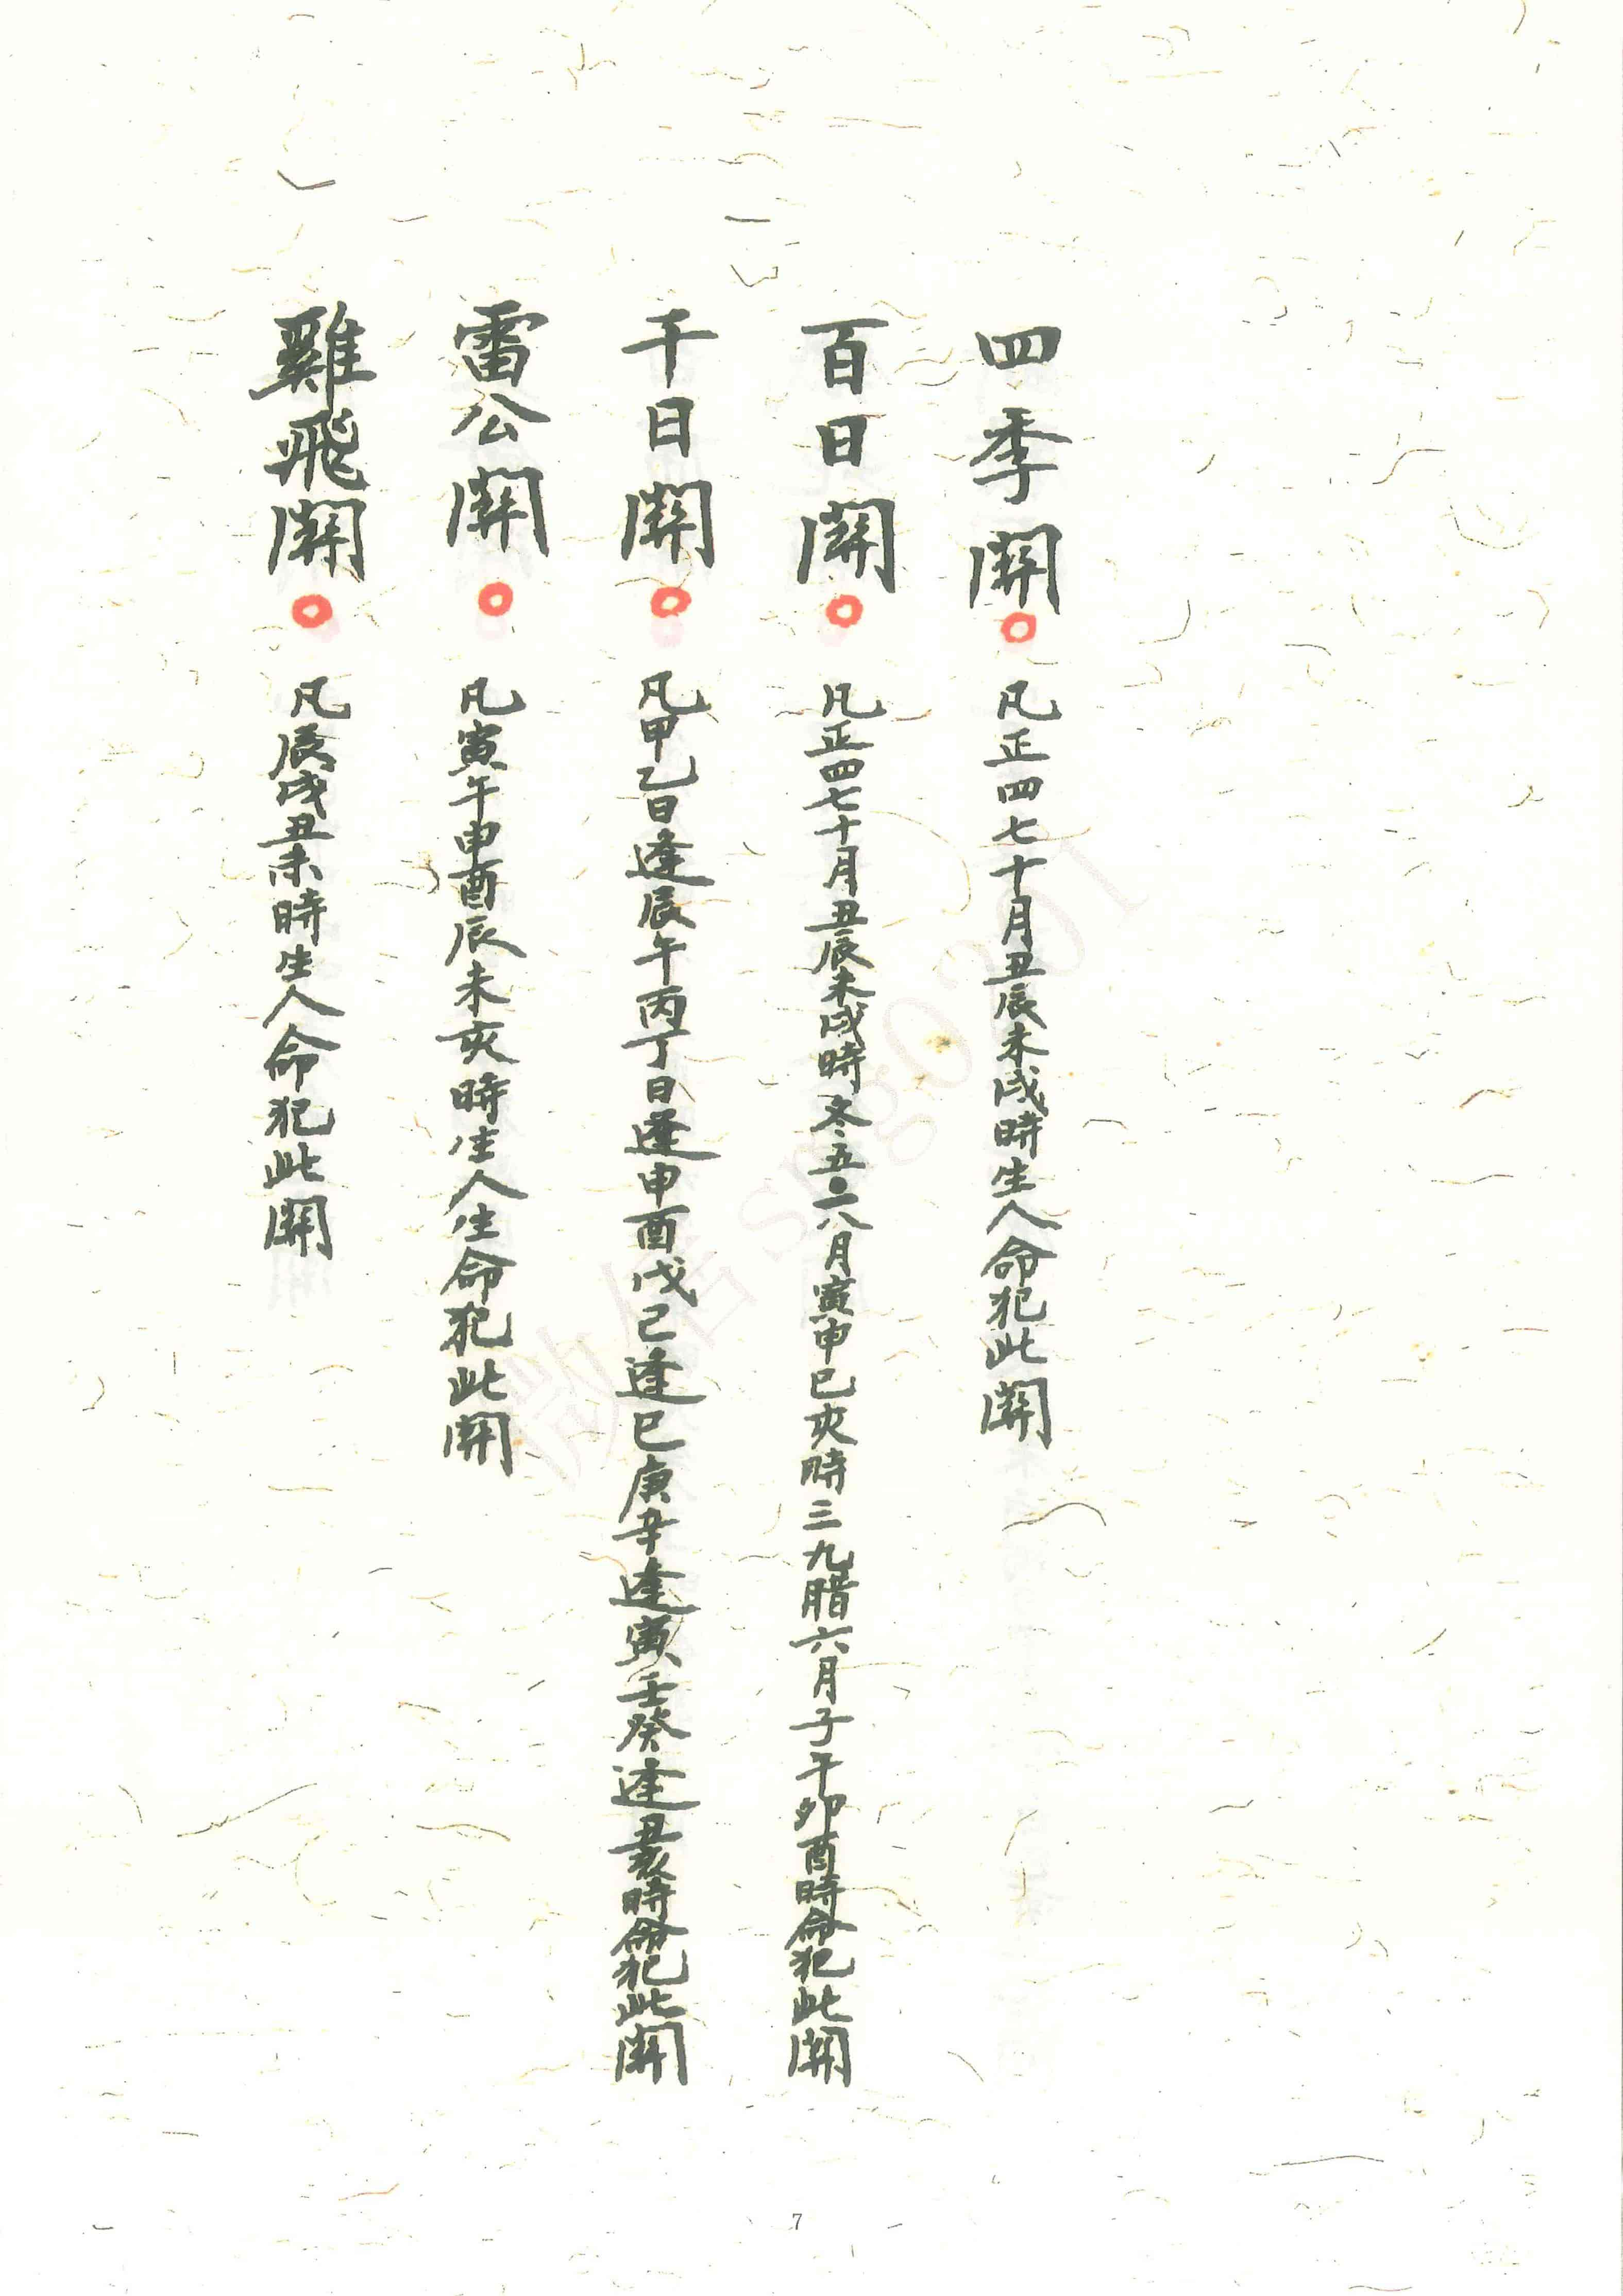 四季關○凡正四七十月丑辰未戌時生人命犯此關
百日關○凡正四七十月丑辰未戌時冬五二八月寅申巳亥時三九腊六月子午卯酉時命犯此關
千日關○凡甲乙日逢辰午丙丁日逢申酉戊己逢巳庚辛逢寅壬癸逢丑亥時命犯此關
雷公關○凡寅午申酉辰未亥時生人生命犯此關
雞飛關○凡辰戌丑未時生人命犯此關
7